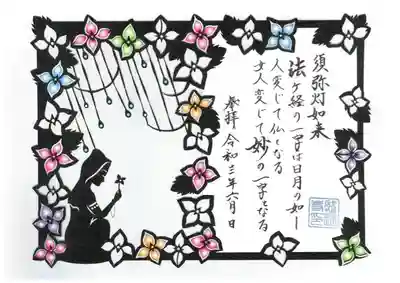 須弥灯如来
法華経の一字は日月の如し
人変じて仏となる
女人変じて妙の一字となる
奉拝 令和三年六月 日